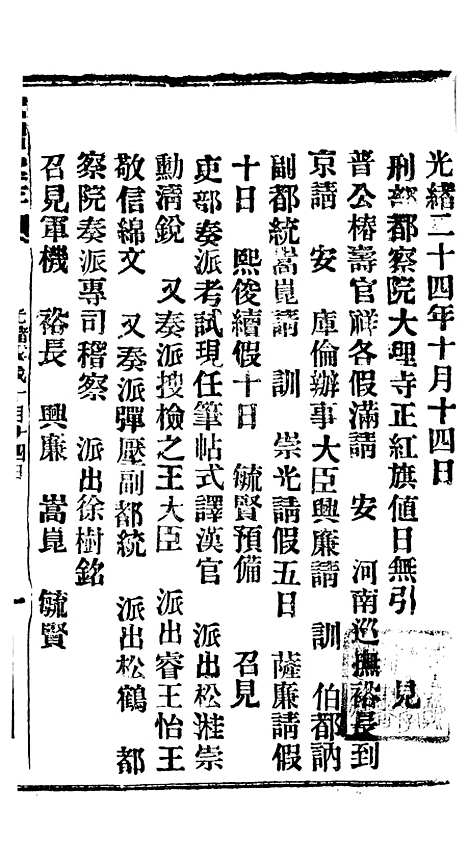 光緒二十四年十月十四日
刑部都察院大理寺正紅旗值日無引　見
普公椿壽官祥各假滿請　安　河南巡撫裕長到
京請　安　庫倫辦事大臣興廉請　訓　伯都訥
副都統嵩崑請　訓　崇光請假五日　薩廉請假
十日　熙俊續假十日　毓賢預備　召見
吏部奏派考試現任筆帖式譯漢官　派出松溎崇
勳清銳　又奏派搜檢之王大臣　派出睿王怡王
敬信綿文　又奏派彈壓副都統　派出松鶴　都
察院奏派專司稽察　派出徐樹銘
召見軍機　裕長　興廉　嵩崑　毓賢